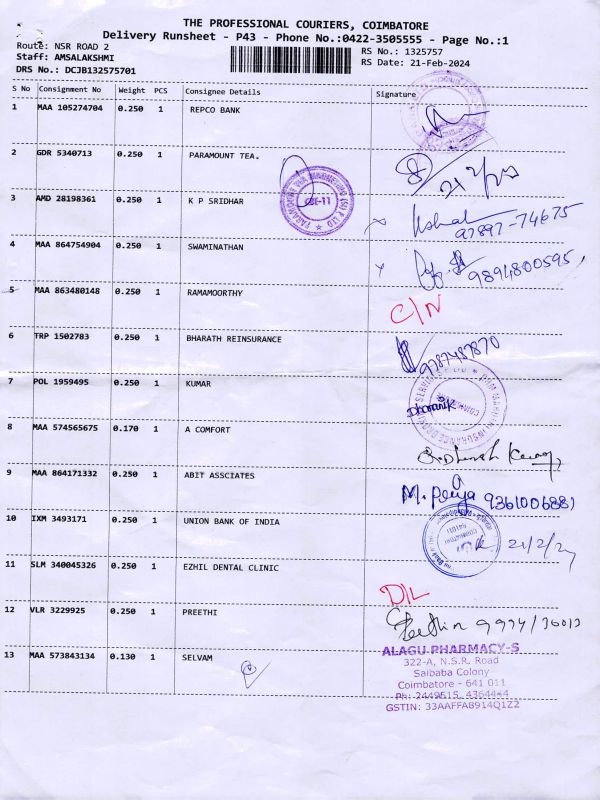 THE PROFESSIONAL COURIERS, COIMBATORE
Delivery Runsheet - P43 - Phone No.:0422-3505555 - Page No.:1
Route: NSR ROAD 2
RS No.: 1325757
Staff: AMSALAKSHMI
RS Date: 21-Feb-2024
DRS No.: DCJB132575701
S No Consignment No Weight PCS Consignee Details Signature
1 MAA 105274704 0.250 1 REPCO BANK
2 GDR 5340713 0.250 1 PARAMOUNT TEA.
CBE-11
3 AMD 28198361 0.250 1 K P SRIDHAR
97897-74675
4 MAA 864754904 0.250 1 SWAMINATHAN
9894800595
5 MAA 863480148 0.250 1 RAMAMOORTHY
C/N
6 TRP 1502783 0.250 1 BHARATH REINSURANCE
9787487870
7 POL 1959495 0.250 1 KUMAR
Dharanik
8 MAA 574565675 0.170 1 A COMFORT
9 MAA 864171332 0.250 1 ABIT ASSCIATES
M. Peeya 9361006881
10 IXM 3493171 0.250 1 UNION BANK OF INDIA
21/2/24
11 SLM 340045326 0.250 1 EZHIL DENTAL CLINIC
D/L
12 VLR 3229925 0.250 1 PREETHI
13 MAA 573843134 0.130 1 SELVAM
ALAGU PHARMACY-S
322-A, N.S.R. Road
Saibaba Colony
Coimbatore - 641 011
Ph: 2449515, 4364444
GSTIN: 33AAFFA8914Q1Z2